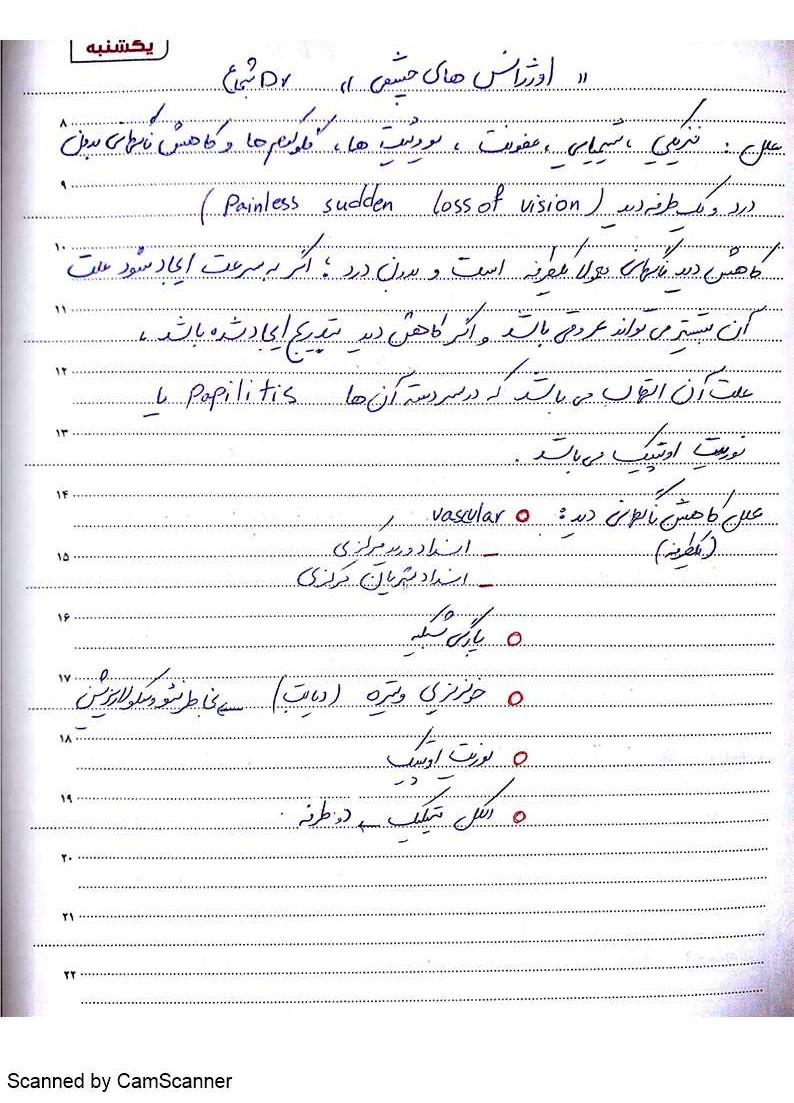 یکشنبه
« اورژانس های چشمی » Dr شجاع
۸
علل : فیزیکی ، شیمیایی ، عفونت ، یووئیت ها ، گلوکوم ها و کاهش ناگهانی بدون
۹
درد و یک طرفه دید ( Painless sudden loss of vision )
۱۰
کاهش دید ناگهانی معمولا یکطرفه است و بدون درد ؛ اگر به سرعت ایجاد شود علت
۱۱
آن بیشتر می تواند عروقی باشد و اگر کاهش دید بتدریج ایجاد شده باشد ،
۱۲
علت آن التهاب می باشد که در سردسته آن ها Papilitis یا
۱۳
نوریت اوپتیک می باشد .
۱۴
علل کاهش ناگهانی دید : vascular
(یکطرفه)
۱۵
– انسداد ورید مرکزی
– انسداد شریان مرکزی
۱۶
پارگی شبکیه
۱۷
خونریزی ویتره (دیابت) ← بخاطر نئوواسکولاریزیشن
۱۸
نوریت اوپتیک
۱۹
الکل متیلیک ← دو طرفه .
۲۰
۲۱
۲۲
Scanned by CamScanner